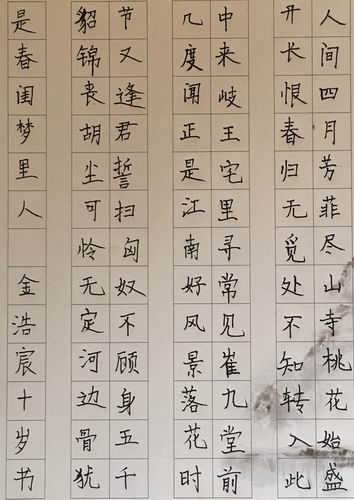 人间四月芳菲尽山寺桃花始盛
开长恨春归无觅处不知转入此
中来岐王宅里寻常见崔九堂前
几度闻正是江南好风景落花时
节又逢君誓扫匈奴不顾身五千
貂锦丧胡尘可怜无定河边骨犹
是春闺梦里人 金浩宸十岁书